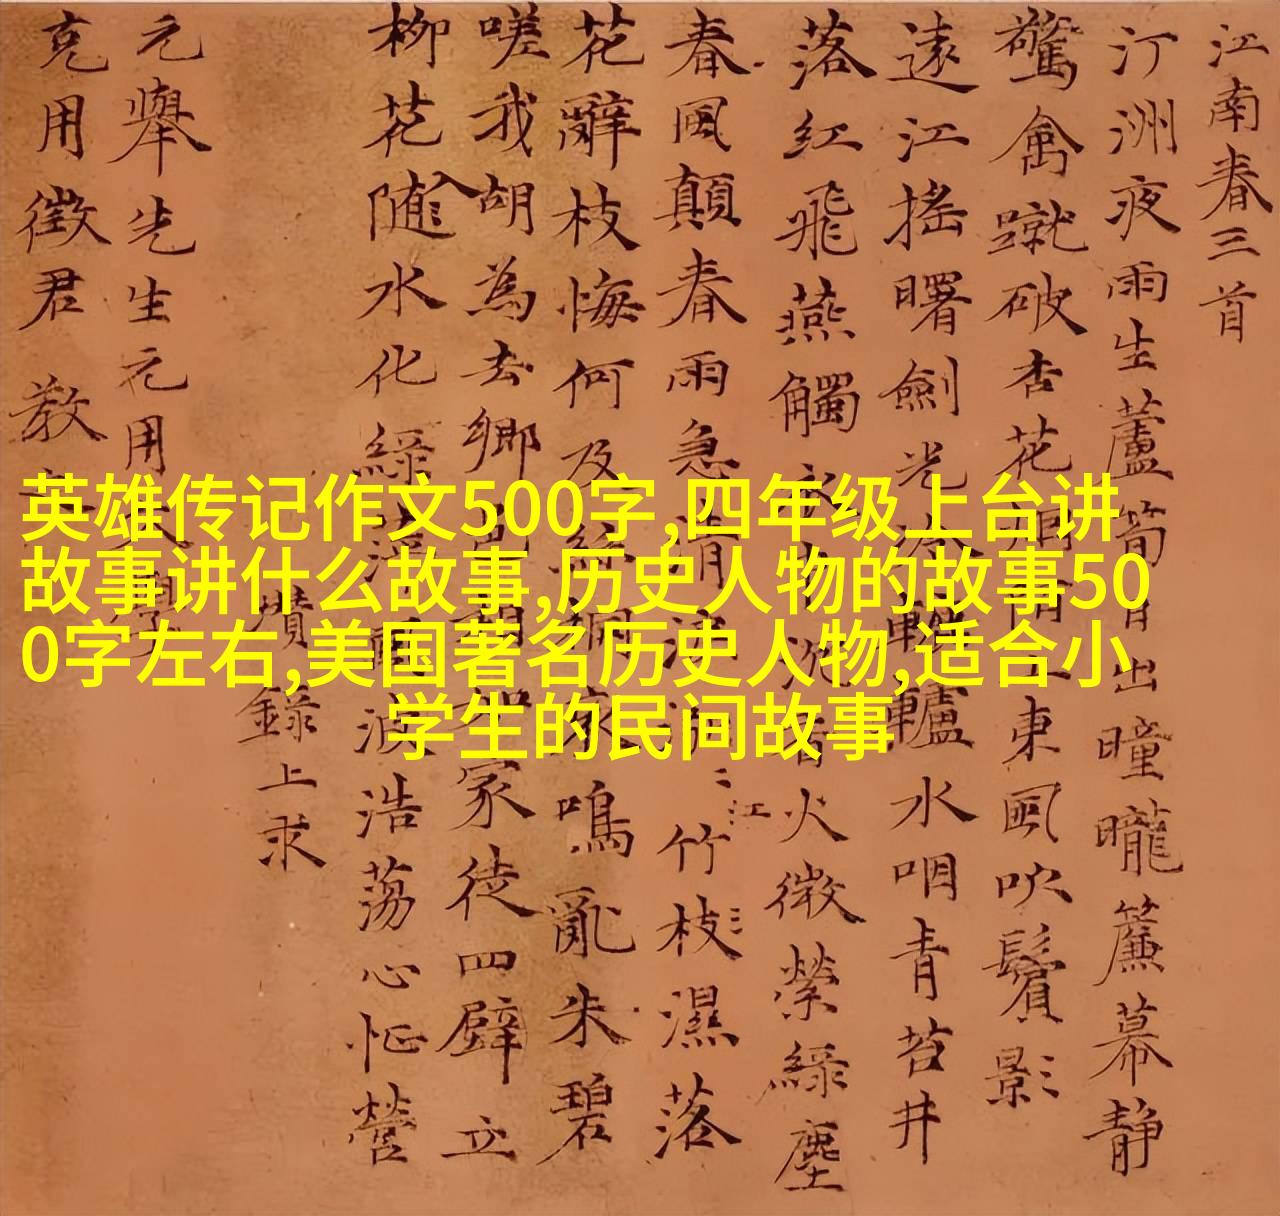 英雄传记作文500字,四年级上台讲
故事讲什么故事,历史人物的故事50
0字左右,美国著名历史人物,适合小
学生的民间故事
江南春三首
汀洲夜雨生蘆笋日出曈曨簾幕静
驚禽蹴破杏花烟陌上東風吹鬢影
遠江摇曙劍光冷轆轤水咽青苔井
落紅飛燕觸衣巾沉香火微縈綠塵
春風顛春雨急清淚泓〻江〻竹枝濕落
花辭枝悔何及絲桐哀鳴亂朱碧
嗟我胡為去鄉邑相如家徒四壁立
柳花随入水化緑萍風波浩蕩心怔營
瓚錄上求
元舉先生元用文學
克用徵君 教